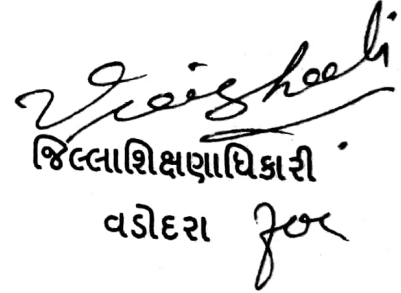 જિલ્લાશિક્ષણાધિકારી
વડોદરા for